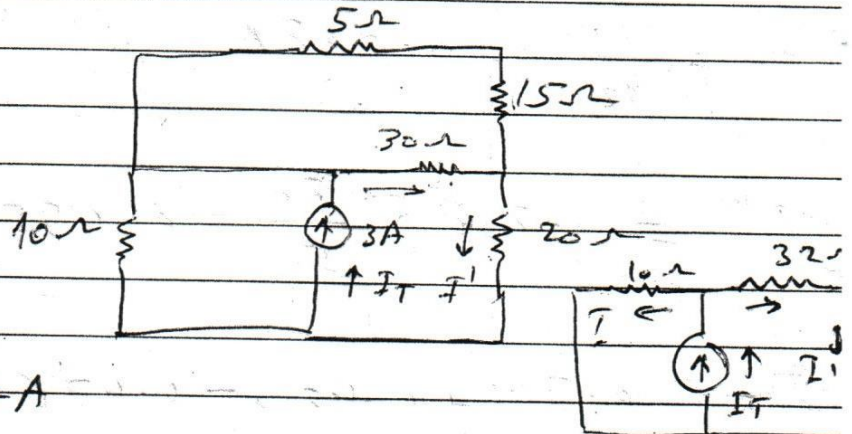 5Ω
15Ω
30Ω
10Ω
3A
20Ω
I_T I'
10Ω
32
I
I'
I_T
-A